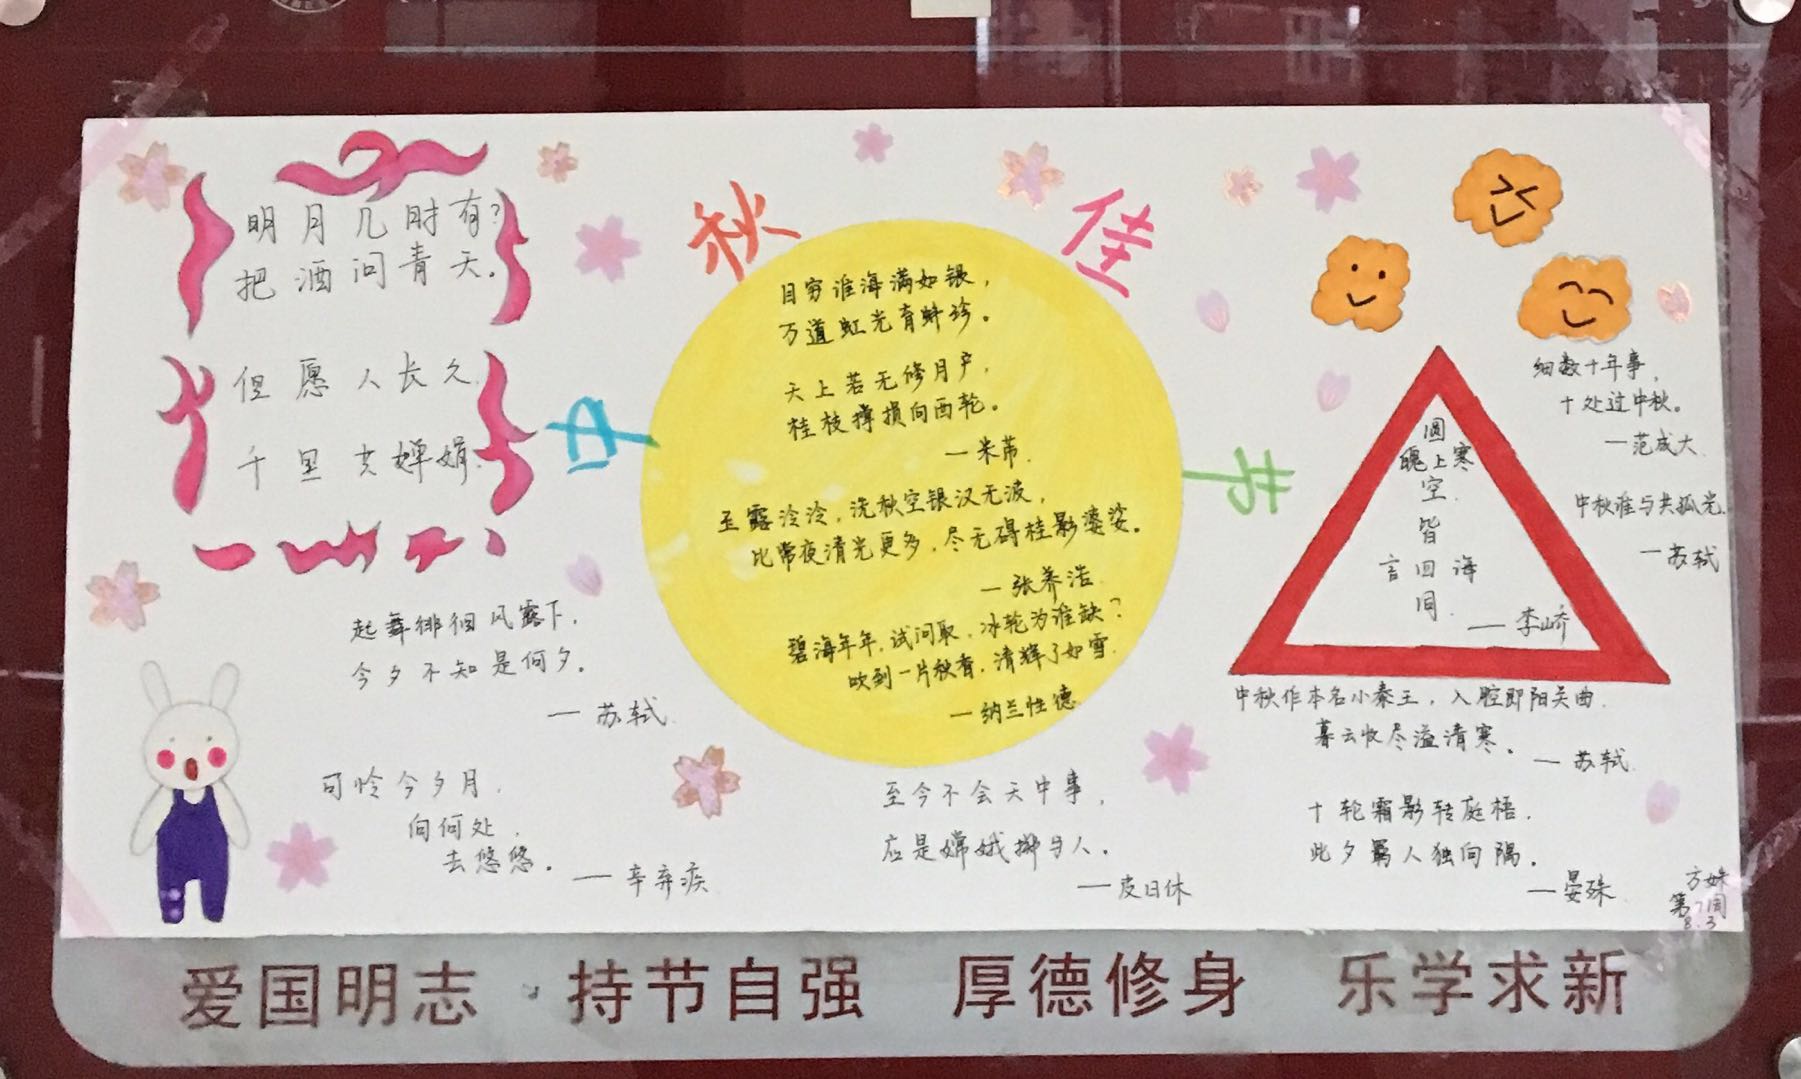 明月几时有？
把酒问青天。
但愿人长久，
千里共婵娟。
起舞徘徊风露下，
今夕不知是何夕。
— 苏轼
可怜今夕月，
向何处，
去悠悠。
— 辛弃疾
中
秋
佳
节
目穷淮海满如银，
万道虹光育蚌珍。
天上若无修月户，
桂枝撑损向西轮。
— 米芾
玉露泠泠，洗秋空银汉无波，
比常夜清光更多，尽无碍桂影婆娑。
— 张养浩
碧海年年，试问取，冰轮为谁缺？
吹到一片秋香，清辉了如雪
— 纳兰性德
至今不会天中事，
应是嫦娥掷与人。
— 皮日休
圆
魄上寒
空，
皆
言四海
同
— 李峤
细数十年事，
十处过中秋。
— 范成大
中秋谁与共孤光
— 苏轼
中秋作本名小秦王，入腔即阳关曲
暮云收尽溢清寒。
— 苏轼
十轮霜影转庭梧，
此夕羁人独向隅。
— 晏殊
第7周
8.3
爱国明志 持节自强 厚德修身 乐学求新